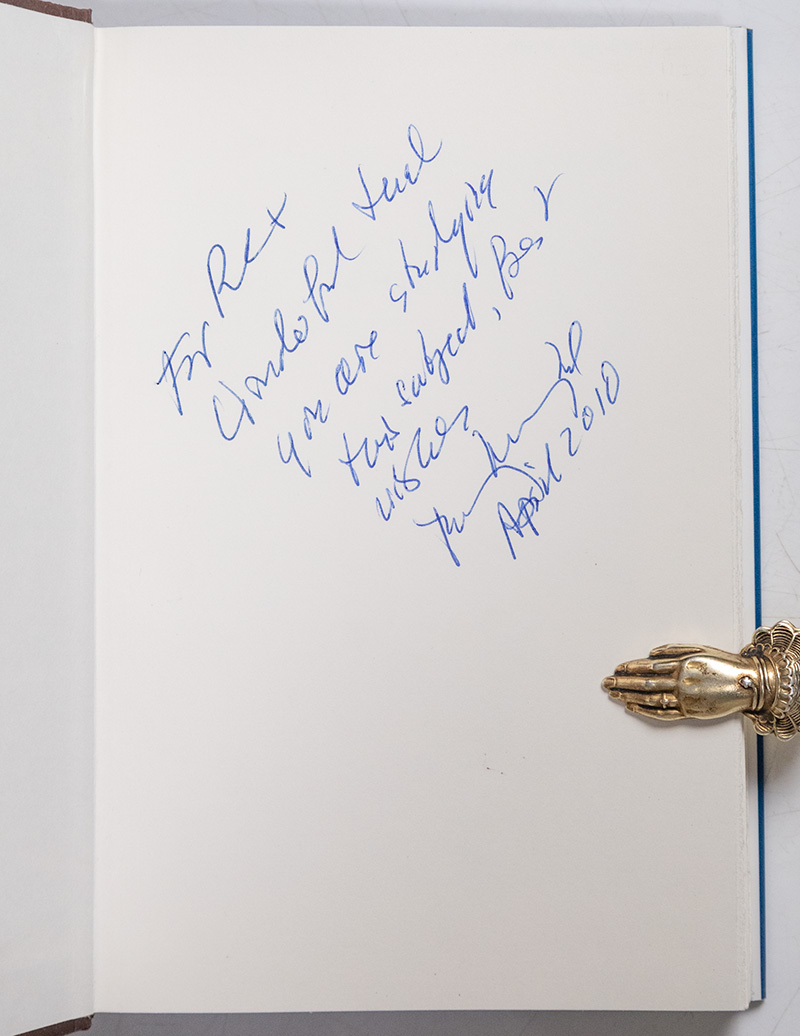 For Rex
Wonderful that
you are studying
this subject, Best
wishes
April 2010